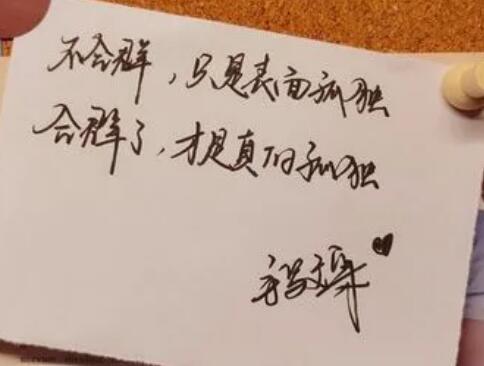 不合群，只是表面孤独
合群了，才是真的孤独